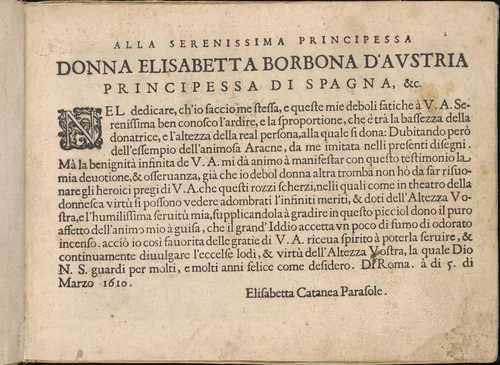 ALLA SERENISSIMA PRINCIPESSA
DONNA ELISABETTA BORBONA D'AVSTRIA
PRINCIPESSA DI SPAGNA, &c.
NEL dedicare, ch'io faccio me stessa, e queste mie deboli fatiche à V. A. Se-
renissima ben conosco l'ardire, e la sproportione, che è trà la bassezza della
donatrice, e l'altezza della real persona, alla quale si dona: Dubitando però
dell'essempio dell'animosa Aracne, da me imitata nelli presenti disegni.
Mà la benignità infinita de V. A. mi dà animo à manifestar con questo testimonio la
mia deuotione, & osseruanza, già che io debol donna altra tromba non hò da far risuo-
nare gli heroici pregi di V. A. che questi rozzi scherzi, nelli quali come in theatro della
donnesca virtù si possono vedere adombrati l'infiniti meriti, & doti dell'Altezza Vo-
stra, e l'humilissima seruitù mia, supplicandola à gradire in questo picciol dono il puro
affetto dell'animo mio à guisa, che il grand'Iddio accetta vn poco di fumo di odorato
incenso. acciò io così fauorita delle gratie di V. A. riceua spirito à poterla seruire, &
continuamente diuulgare l'eccelse lodi, & virtù dell'Altezza Vostra, la quale Dio
N. S. guardi per molti, e molti anni felice come desidero. Di Roma. à di 5. di
Marzo 1610.
Elisabetta Catanea Parasole.